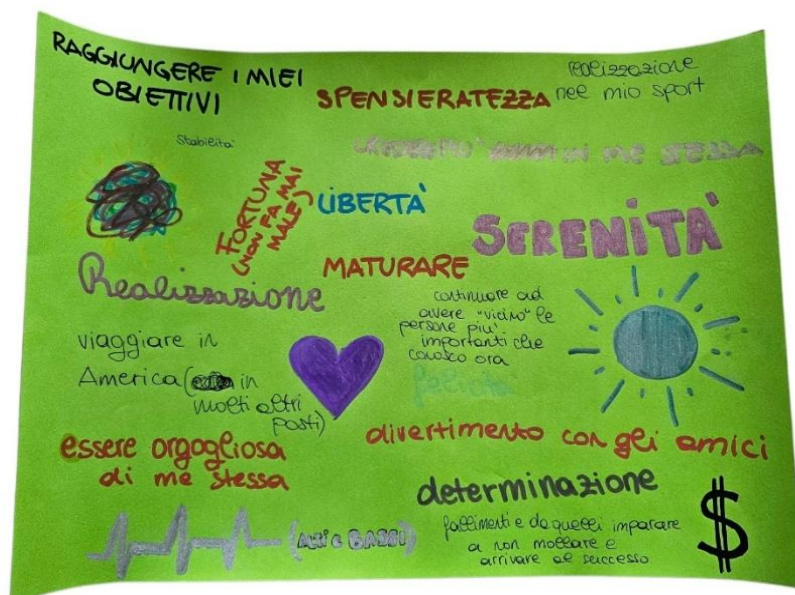 RAGGIUNGERE I MIEI
OBIETTIVI
SPENSIERATEZZA
realizzazione
nel mio sport
Stabilità
CREDERE PIÙ IN ME STESSA
FORTUNA
(NON FA MAI
MALE)
LIBERTÀ
SERENITÀ
MATURARE
Realizzazione
continuare ad
avere "vicino" le
persone più
importanti che
conosco ora
viaggiare in
America ( in
molti altri
posti)
felicità
essere orgogliosa
di me stessa
divertimento con gli amici
determinazione
fallimenti e da quelli imparare
a non mollare e
arrivare al successo
(ALTI e BASSI)
$